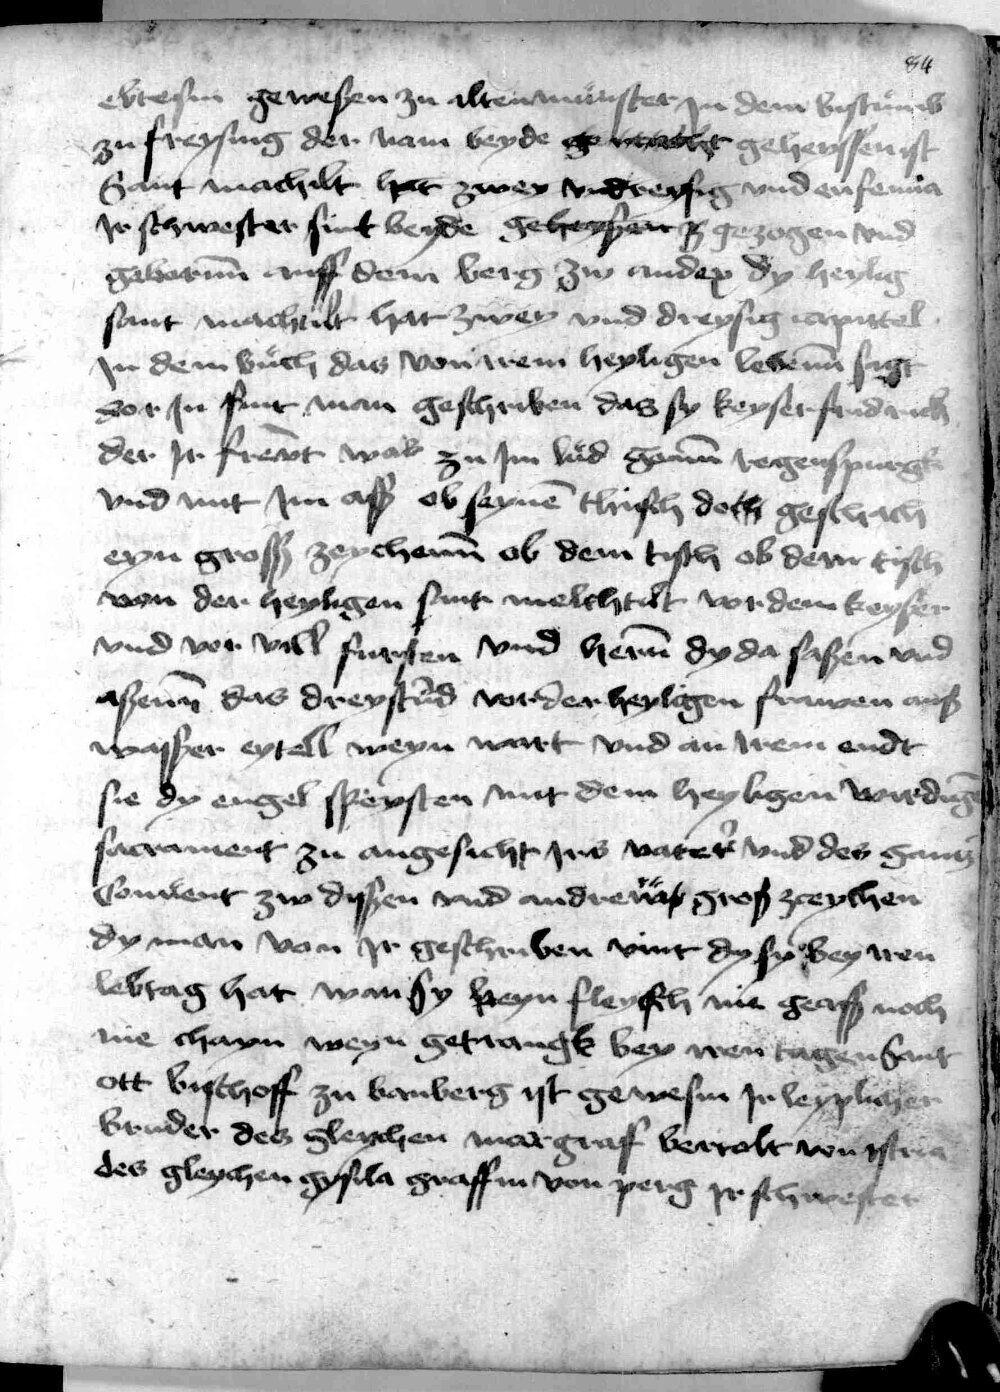 84
ebtesin gewesen zu altenmünster Jn dem bistumb
zu freysing der nam beyde geheyssen ist
Sant machilt hat zwey vnd reysig vnd eufemia
Jr schwester sint beyde geheysen gezogen vnd
geborenn auff dem berg zw andex dy heylig
sant machtilt hat zwey vnd dreysig capittel
Jn dem buch das von irem heyligen lebenn sagt
dor Jn fint man geschriben das sy keyser fridrich
der Jr frewt was zu Jm lud genn regenspurgk
vnd mit Jm ass ob seynē thisch doch geschach
eyn gross zeychenn ob dem tisch ob dem tisch
von der heyligen sant melchtilt vor dem keyser
vnd vor vill fursten vnd herrn dy da sasen vnd
asenn das dreystūd vor der heyligen frawen aus
wasser eytell weyn wart vnd an irem endt
sie dy engel speysten mit dem heyligen wirdigē
sacrament zu angesicht Jrs vaters vnd des gantz
Conuent zw dissen vnd andrew gros zceychen
dy man von Jr geschriben vint dy sy bey iren
lebtag hat wan sy keyn fleysch nie geass noch
nie chayn weyn getrangk bey iren tagen Sant
ott bischoff zu banberg ist gewesin Jr leyplicher
bruder des gleychen margraff bertolt von istria
des gleychen gysila graffin von perg Jr schwester